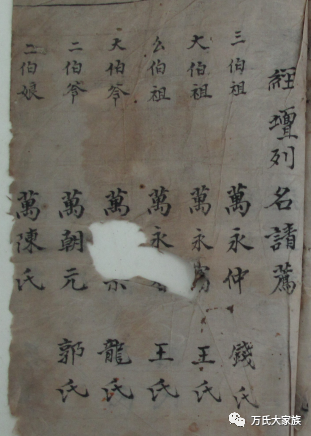 經壇列名請薦
三伯祖 萬永仲 錢氏
大伯祖 萬永 王氏
伯祖 萬永 王氏
伯爷 萬 龍氏
二伯爷 萬朝元 郭氏
二伯娘 萬陳氏
万氏大家族